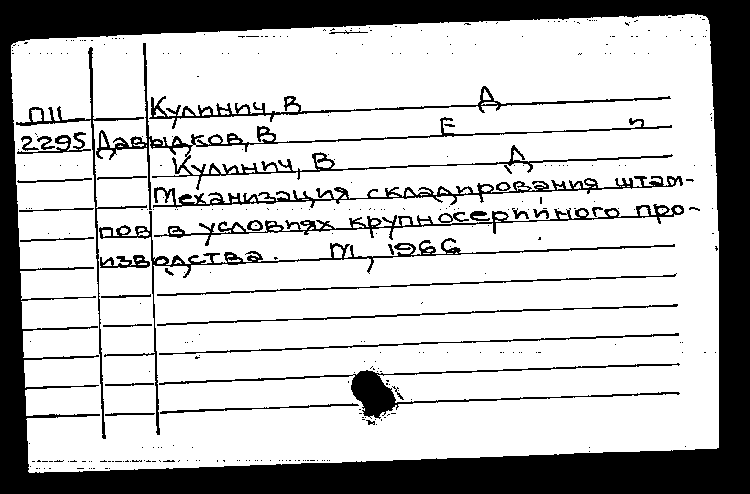 П11 Кулинич, В Д
2295 Давыдков, В Е п
Кулинич, В Д
Механизация складирования штам-
пов в условиях крупносерийного про-
изводства. М, 1966